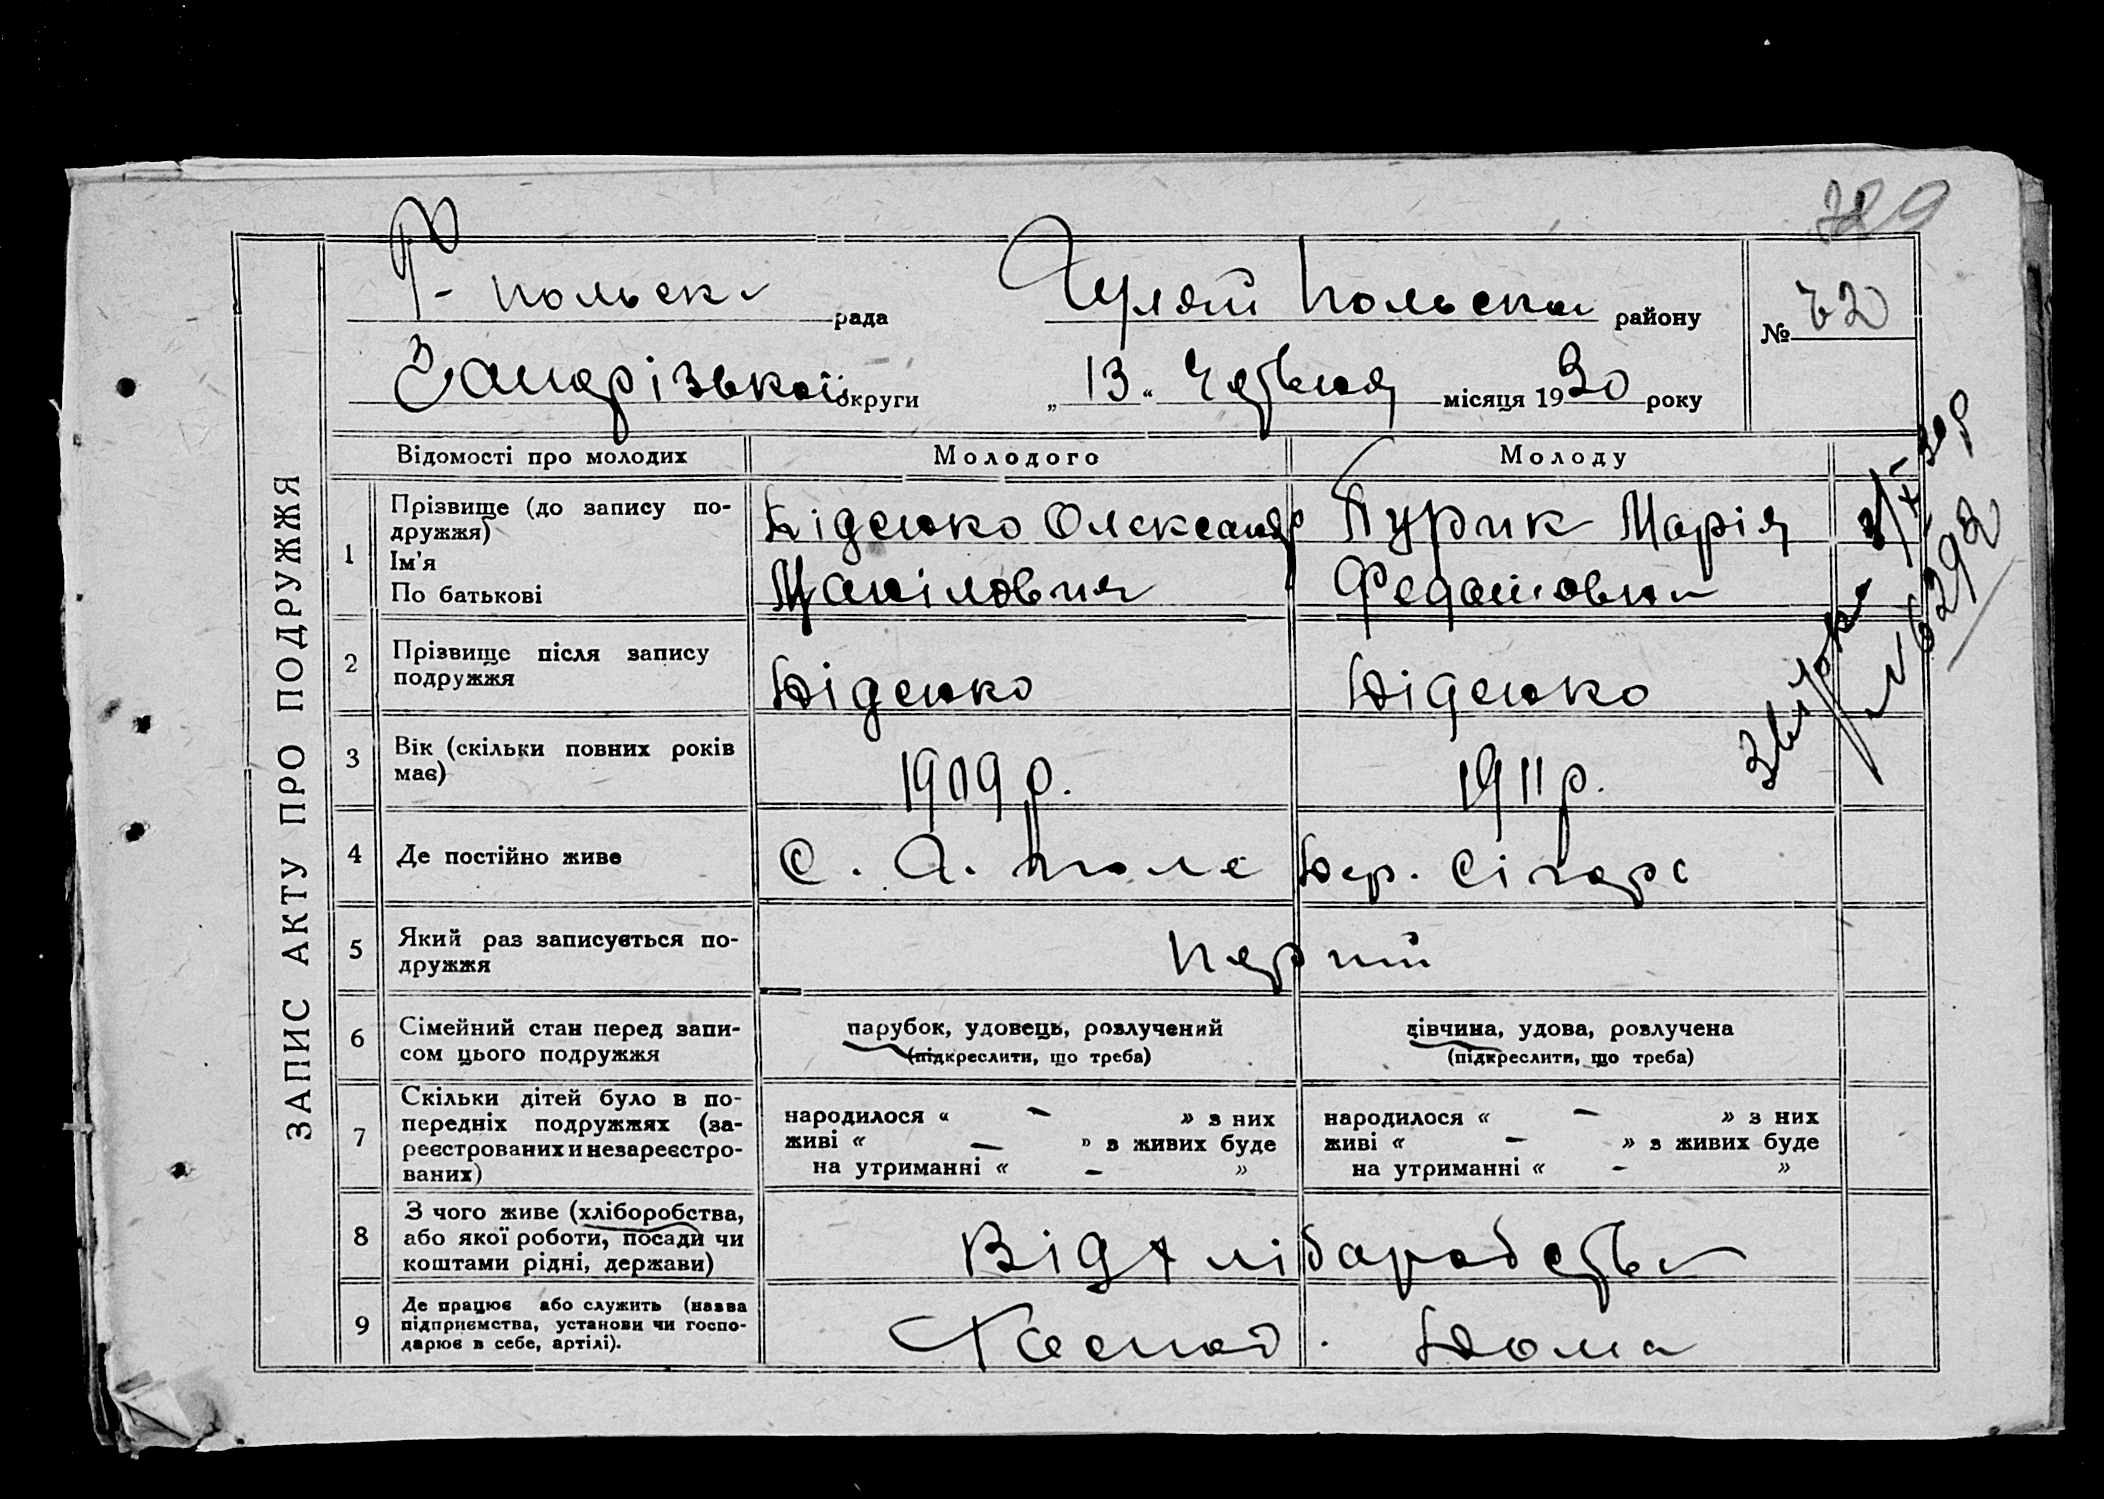 789
Г- польска рада Гуляй Польска району № 62
Запорізької округи „ 13 “ червня місяця 1930 року
ЗАПИС АКТУ ПРО ПОДРУЖЖЯ
Відомості про молодих Молодого Молоду
1 Прізвище (до запису по-
дружжя)
Ім'я
По батькові
Діденко Олександр
Данілович
Пурик Марія
Федотовна
2 Прізвище після запису
подружжя
Діденко Діденко
3 Вік (скільки повних років
має)
1909 р. 1911 р.
4 Де постійно живе
С. Г. поле
5 Який раз записується по-
дружжя
перший
6 Сімейний стан перед запи-
сом цього подружжя
парубок, удовець, розлучений
(підкреслити, що треба)
дівчина, удова, розлучена
(підкреслити, що треба)
7 Скільки дітей було в по-
передніх подружжях (за-
реєстрованих и незареєстро-
ваних)
народилося « — » з них
живі « — » з живих буде
на утриманні « — »
народилося « — » з них
живі « — » з живих буде
на утриманні « — »
8 З чого живе (хліборобства,
або якої роботи, посади чи
коштами рідні, держави)
Від хліборобства
9 Де працює або служить (назва
підприємства, установи чи госпо-
дарює в себе, артілі).
Господ. Дома